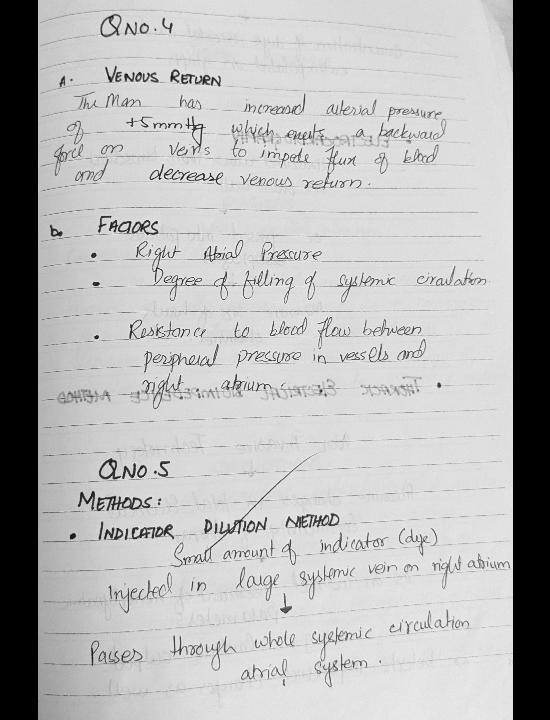 QNO.4
A. VENOUS RETURN
The Man has increased aterial pressure
of +5mmHg which exerts a backward
force on veins to impede flux of blood
and decrease venous return.
b. FACTORS
• Right Atrial Pressure
• Degree of filling of systemic ciraulation
• Resistance to blood flow between
peripheral pressure in vessels and
right atrium.
QNO.5
METHODS:
• INDICATOR DILUTION METHOD
Small amount of indicator (dye)
Injected in large systemic vein on right atrium
↓
Passes through whole systemic circulation
atrial system.